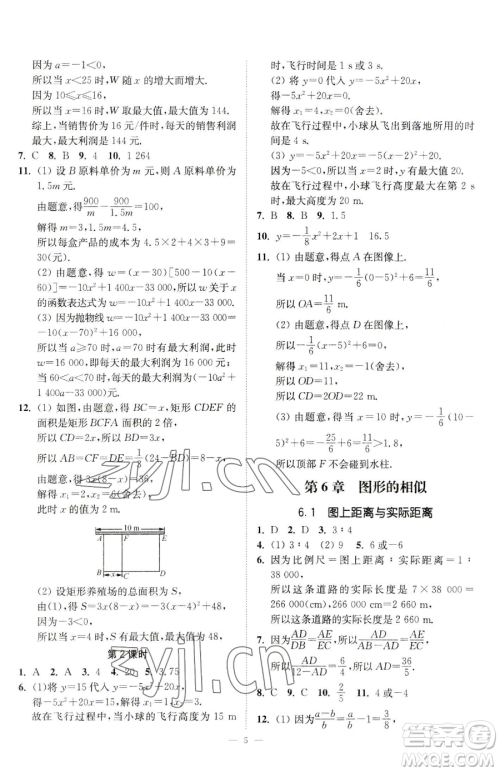 因为 a=-1<0,
所以当 x<25 时,W 随 x 的增大而增大.
因为 10≤x≤16,
所以当 x=16 时,W 取最大值,最大值为 144.
综上,当销售价为 16 元/件时,每天的销售利润最大,最大利润是 144 元.
7. C 8. B 9. 4 10. 1 264
11. (1) 设 B 原料单价为 m 元,则 A 原料单价为
1.5m 元.
由题意,得 900/m - 900/1.5m = 100.
解得 m=3,1.5m=4.5.
所以每盒产品的成本为 4.5×2+4×3+9=
30(元).
(2) 由题意,得 w=(x-30)[500-10(x-
60)]=-10x²+1 400x-33 000,所以 w 关于 x
的函数表达式为 w=-10x²+1 400x-33 000.
(3) 因为抛物线 w=-10x²+1 400x-33 000=
-10(x-70)²+16 000,
所以当 a≥70 时,每天的最大利润,此时
w=16 000,即每天的最大利润为 16 000 元.
当 60<a<70 时,每天的最大利润为
(-10a²+1 400a-33 000)元.
12. (1) 如图,由题意,得 BC=x,矩形 CDEF 的
面积是矩形 BCFA 面积的 2 倍,
所以 CD=2x,所以 BD=3x,
所以 AB=CF=DE=1/8(24-BD)=8-x.
由题意,得 3x(8-x)=36,
解得 x₁=2,x₂=6(舍去).
10 m
A F E
B x C D
(2) 设矩形养殖场的总面积为 S m².
由(1),得 S=3x(8-x)=-3(x-4)²+48,
所以当 x=4 时,S 取最大值,最大值为 48.
第 2 课时
1. A 2. A 3. A 4. 20 5. 3.75
6. (1) 将 y=15 代入 y=-5x²+20x,得-5x²+
20x=15,解得 x₁=1,x₂=3.
故在飞行过程中,当小球的飞行高度为 15 m
时,飞行时间是 1 s 或 3 s.
(2) 将 y=0 代入 y=-5x²+20x,
得 0=-5x²+20x,
解得 x₁=4,x₂=0(舍去).
故在飞行过程中,小球从飞出到落地所用的时
间是 4 s.
(3) y=-5x²+20x=-5(x-2)²+20,
所以当 x=2 时,y 取最大值,最大值为 20.
故在飞行过程中,小球飞行高度在第 2 s
时最大,最大高度为 20 m.
7. B 8. B 9. 1.5
10. y=-1/8x²+2x+1 16.5
11. (1) 由题意,得点 A 在图像上.
当 x=0 时,y=-1/6(0-5)²+6=11/6,
所以 OA=11/6 m.
(2) 由题意,得点 D 在图像上.
所以-1/6(x-5)²+6=0,
解得 x₁=11,x₂=-1(舍去),
所以 OD=11,
所以 CD=2OD=22 m.
(3) 当 x=10 时,-1/6(x-5)²+6=-1/6(10-
5)²+6=-25/6+6=11/6>10/6,
所以顶部 F 不会碰到水柱.
第 6 章 图形的相似
6.1 图上距离与实际距离
1. D 2. D 3. 3∶4
4. (1) 3∶4 (2) 9 5. 6 或-6
6. 因为比例尺=图上距离∶实际距离=1∶
38 000,
所以这条道路的实际长度为 7×38 000=
266 000(cm)=2 660(m).
所以这条道路的实际长度为 2 660 m.
7. 因为 AD/DB=AE/EC,所以 AD/AB=AE/AC,
所以 AD/12=6/10,所以 AD=36/5.
8. D 9. C 10. 2/5
12. (1) 因为 (a-b)/b=a/b-1=3/5,
— 5 —
zyjl.cn
答案圈